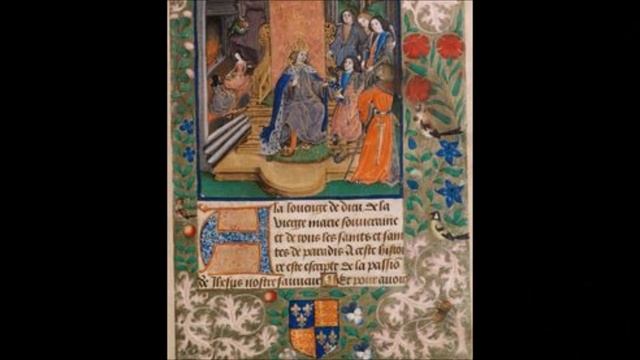 A la louenge de dieu de la
vierge marie souveraine
et de tous les saints et sain
tes de paradis A ceste histoi
re este escript de la passio
de Ihesus nostre sauueur Et pour auoir